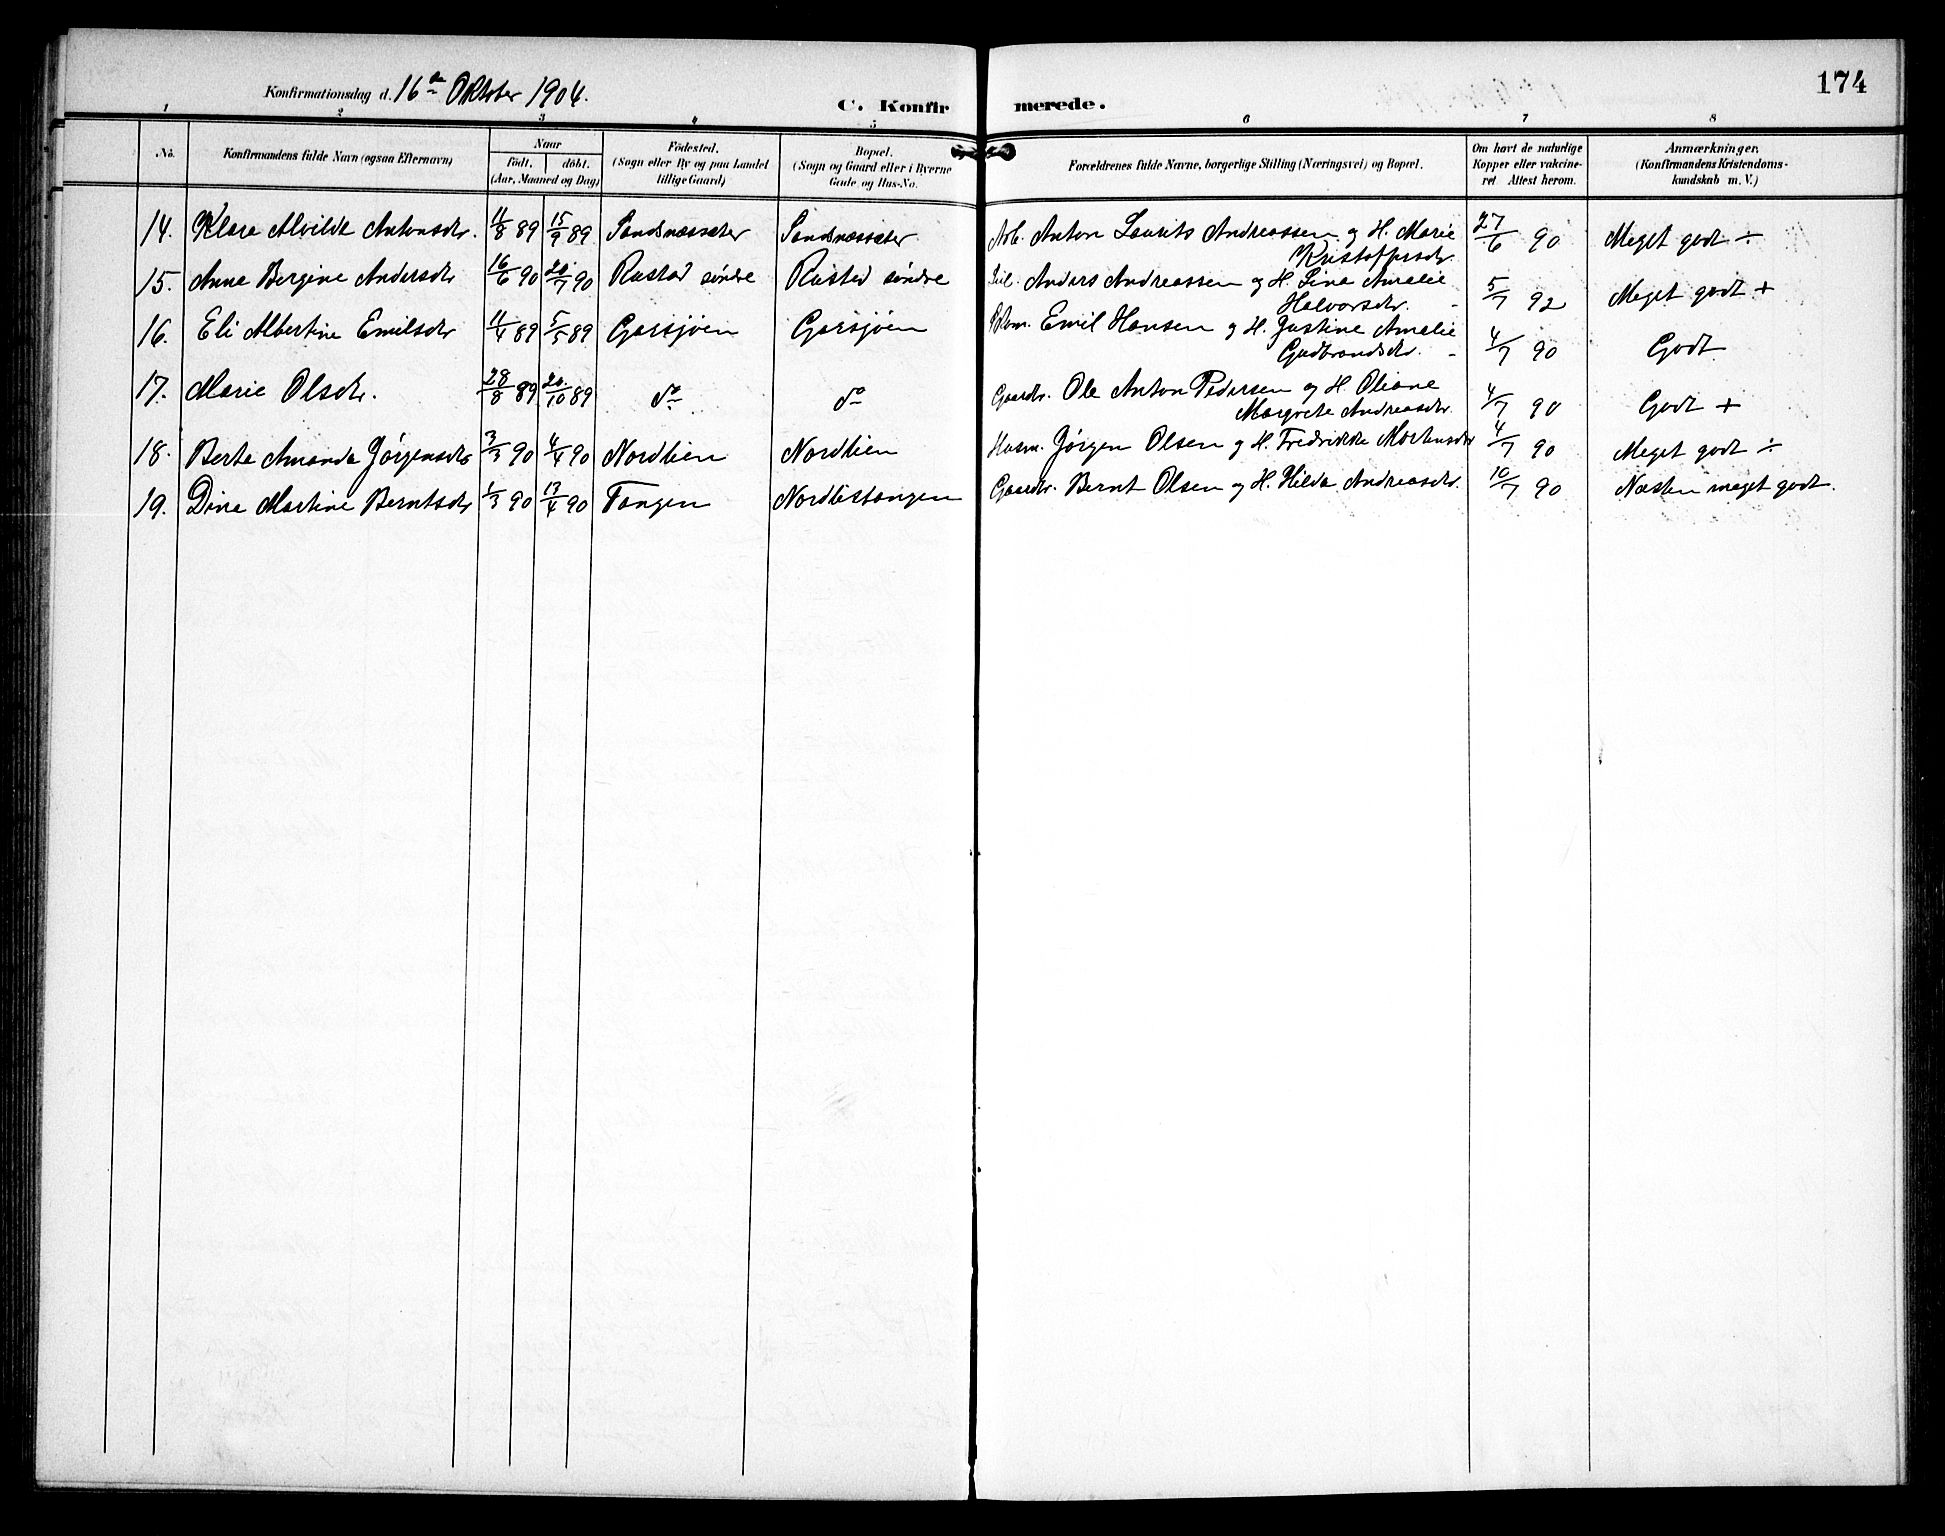 174
Konfirmationsdag d. 16de Oktober 1904.
C. Konfirmerede.
1 2 3 4 5 6 7 8
No. Konfirmandens fulde Navn (ogsaa Efternavn) Naar Födt, döbt. (Aar, Maaned og Dag) Födested. (Sogn eller By og paa Landet tillige Gaard) Bopæl. (Sogn og Gaard eller i Byerne Gade og Hus-No. Forældrenes fulde Navne, borgerlige Stilling (Næringsvei) og Bopæl. Om havt de naturlige Kopper eller vakcineret Attest herom. Anmærkninger. (Konfirmandens Kristendomskundskab m. V.)
14. Klara Alvilde Antonsdtr. 11/8 89 15/9 89 Sandnæssæter Sandnæssæter Arb. Anton Laurits Andreassen og H. Marie 27/6 90 Meget godt ÷
Kristoffersdtr.
15. Anna Bergine Andersdtr 16/6 90 20/7 90 Rustad söndre Rustad söndre Anders Andreassen og H. Lina Amalie 5/7 92 Meget godt +
Halvorsdtr. -
16. Eli Albertine Emilsdtr 11/4 89 5/5 89 Garsjöen Garsjöen Emil Hansen og H. Justine Amalie 4/7 90 Godt
Gudbrandsdtr. -
17. Marie Olsdtr. 28/8 89 20/10 89 do do Gaardbr. Ole Anton Pedersen og H. Oliane 4/7 90 Godt +
Margrete Andreasdtr.
18. Berte Amanda Jørgensdtr 3/3 90 4/4 90 Nordlien Nordlien Husm. Jørgen Olsen og H. Fredrikke Mortensdtr 4/7 90 Meget godt ÷
19. Dina Martine Berntsdtr 1/3 90 13/4 90 Tangen Nordlistangen Gaardbr. Bernt Olsen og H. Hilda Andreasdtr. 10/7 90 Næsten meget godt.